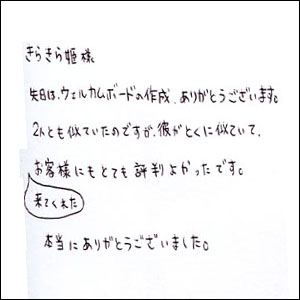 きらきら姫様
先日は、ウェルカムボードの作成、ありがとうございます。
2人とも似ていたのですが、彼がとくに似ていて、
お客様にもとても評判よかったです。
来てくれた
本当にありがとうございました。